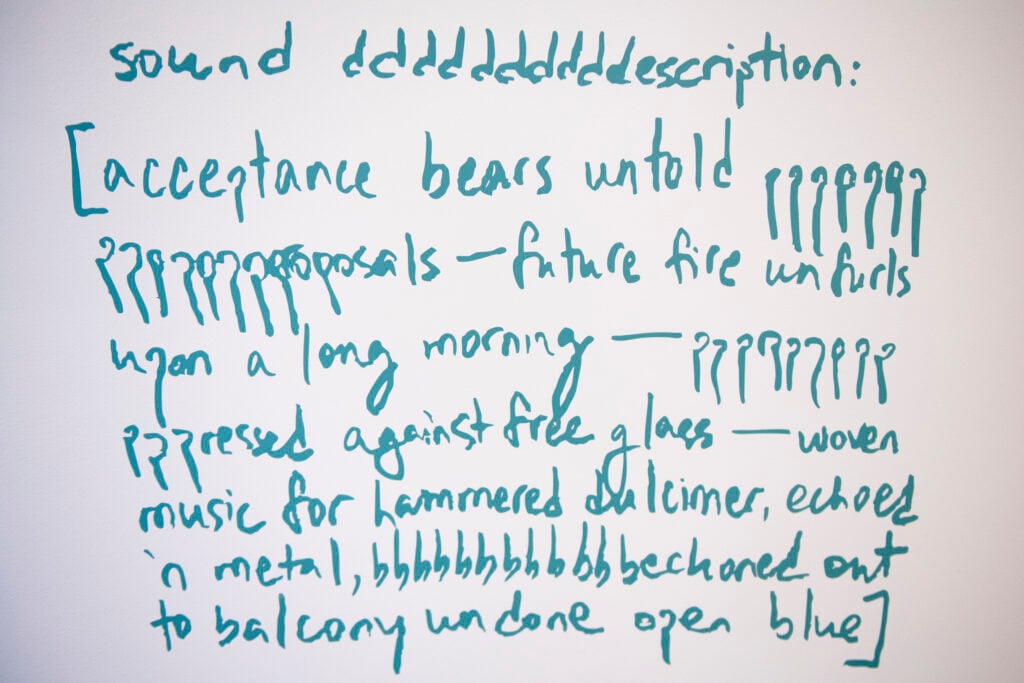 sound ddddddddddescription:
[acceptance bears untold ppppppp
pppppppppproposals — future fire unfurls
upon a long morning — pppppppp
pppressed against free glass — woven
music for hammered dulcimer, echoed
in metal, bbbbbbbbbbbbeckoned out
to balcony undone open blue]